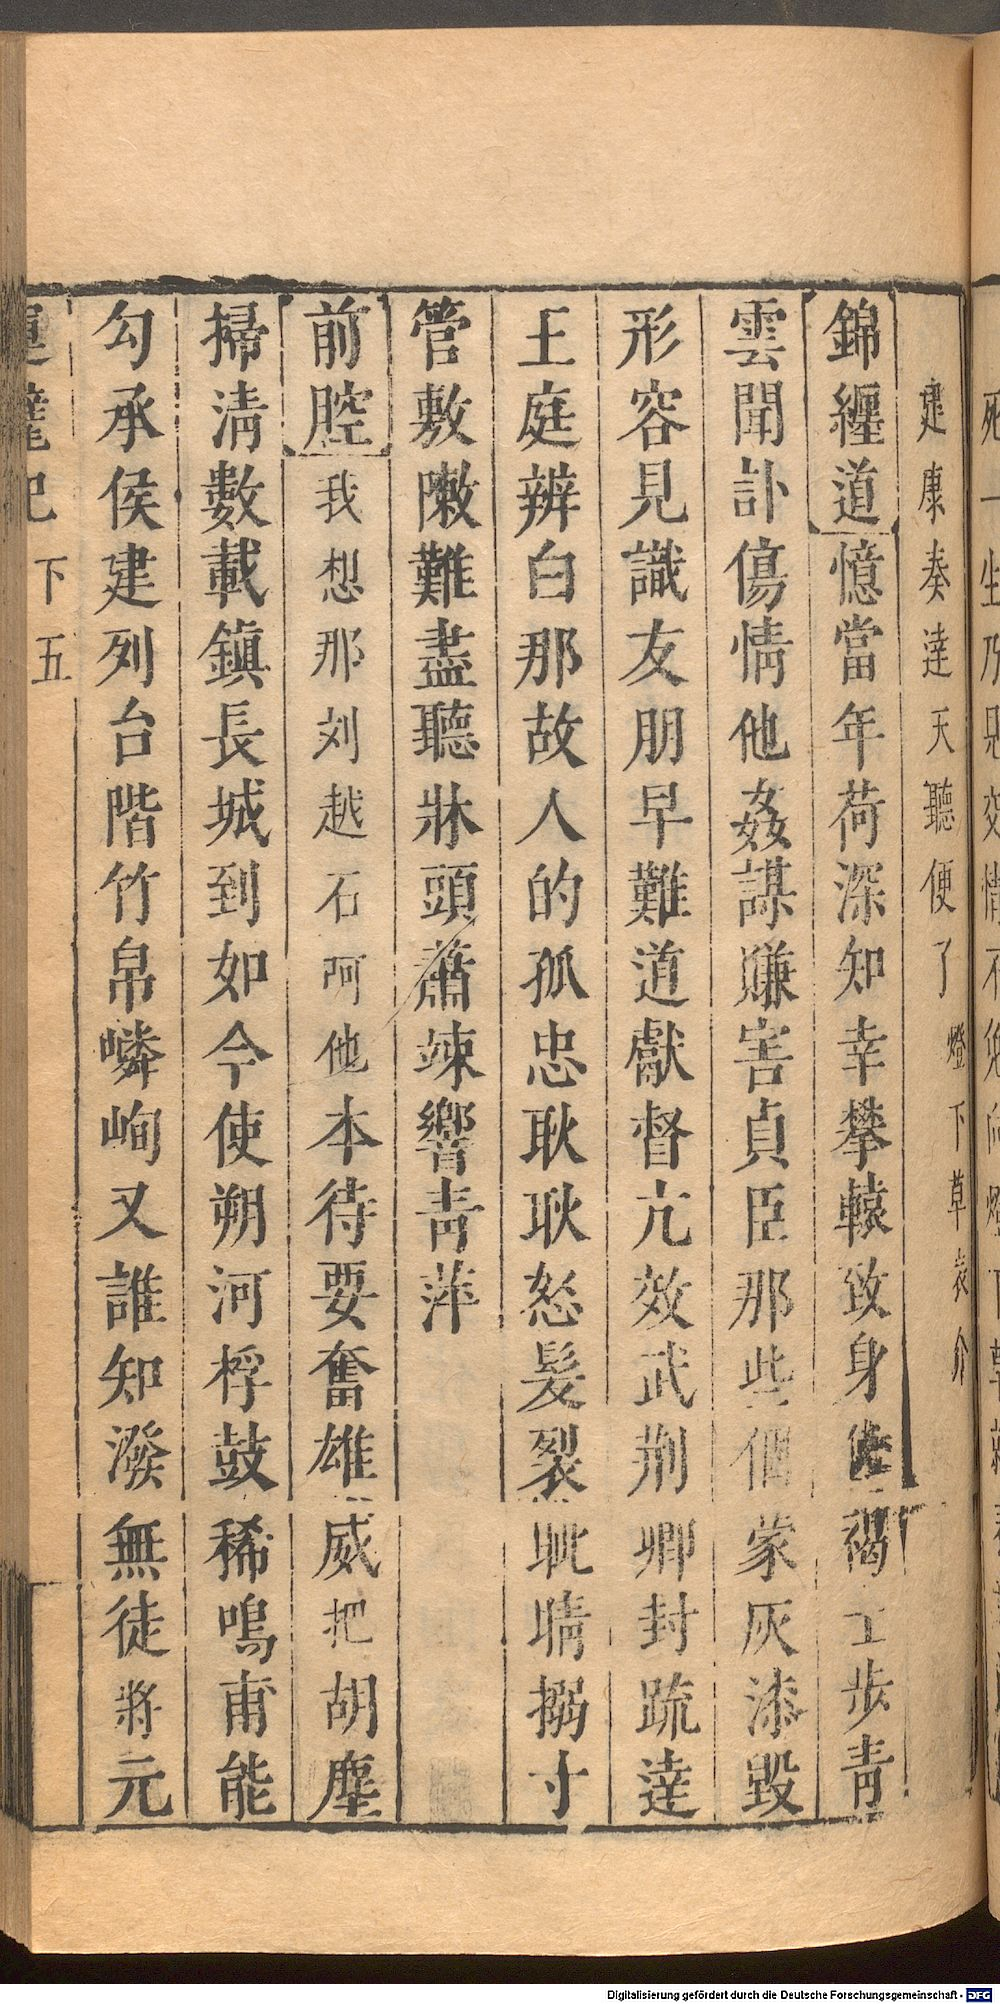 建康奏達天聽便了燈下草表介
錦纏道憶當年荷深知幸攀轅致身褐步靑
雲聞訃傷情他姦謀賺害貞臣那些個蒙灰漆毀
形容見識友朋早難道獻督亢效武荆卿封疏達
王庭辨白那故人的孤忠耿耿怒髮裂眦睛搦寸
管敷嫩難盡聽牀頭蕭竦響靑萍
前腔我想那刘越石阿他本待要奮雄威把胡塵
掃淸數載鎭長城到如今使朔河桴鼓稀鳴甫能
勾承侯建列台階竹帛嶙峋又誰知潑無徒將元
運甓記 下 五
Digitalisierung gefördert durch die Deutsche Forschungsgemeinschaft - DFG